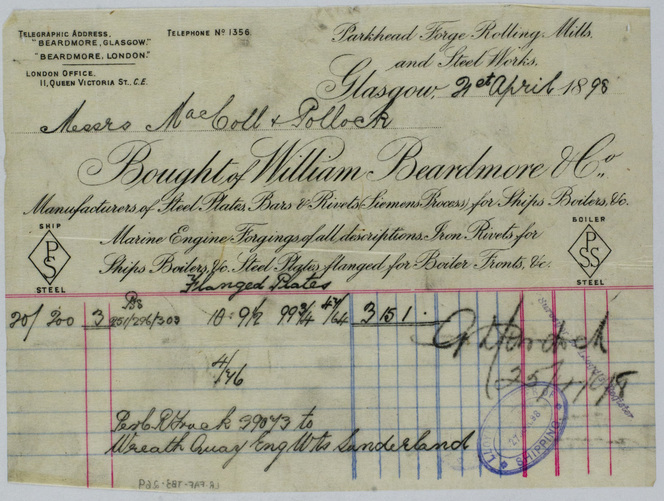 TELEGRAPHIC ADDRESS,
"BEARDMORE, GLASGOW."
"BEARDMORE, LONDON."
LONDON OFFICE.
11, QUEEN VICTORIA ST., E.C.
TELEPHONE No 1356.
Parkhead Forge Rolling Mills,
and Steel Works.
Glasgow, 21st April 1898
Messrs MacColl & Pollock
Bought of William Beardmore & Co.,
Manufacturers of Steel Plates, Bars & Rivets (Siemens Process) for Ships Boilers, &c.
Marine Engine Forgings of all descriptions. Iron Rivets for
Ships Boilers, &c. Steel Plates flanged for Boiler Fronts, &c.
SHIP
PS
STEEL
BOILER
PSS
STEEL
Flanged Plates
20/ 200 3 10 · 9 1/2 99 3/4 47/64 3 15 1 ·
4/76
Per C R Truck 59073 to
Wreath Quay Eng Wks Sunderland
SHIPPING